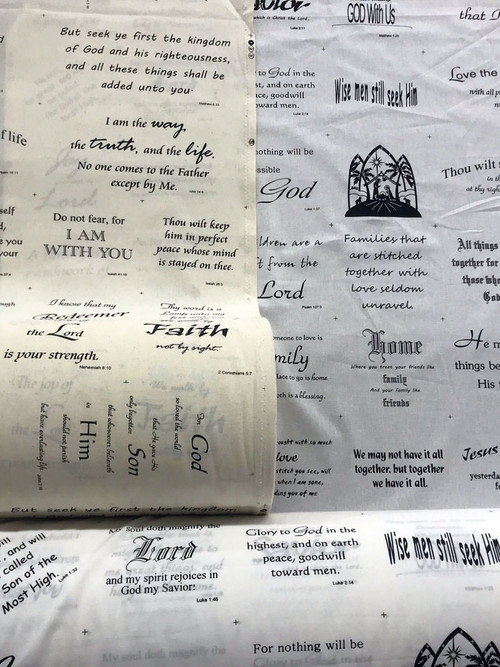 But seek ye first the kingdom
of God and his righteousness,
and all these things shall be
added unto you.
I am the way,
the truth, and the life.
No one comes to the Father
except by Me.
Do not fear, for
I AM
WITH YOU
Thou wilt keep
him in perfect
peace whose mind
is stayed on thee.
Isaiah 26:3
I know that my
Redeemer
the Lord
is your strength.
Nehemiah 8:10
Thy word is a
Faith
not by sight.
2 Corinthians 5:7
For God
so loved the world
that He gave His
only begotten Son
that whosoever believeth
in Him
should not perish
but have everlasting life.
But seek ye first the kingdom
of life
self
which is Christ the Lord.
Luke 2:11
GOD With Us
that
to God in the
, and on earth
ce, goodwill
ward men.
Luke 2:14
Wise men still seek Him
Love the
with all
nothing will be
ssible
God
Luke 1:37
Thou wilt
in th
at thy righ
ldren are a
t from the
Lord
Psalm 127:3
Families that
are stitched
together with
love seldom
unravel.
All things
together for
God
omeone to love is
mily
lace to go is home
oth is a blessing.
Home
where you treat your friends like
family
And your family like
friends
He m
things be
His
ught with so much
love
stitch you see, will
when I am sone,
ding you of me
We may not have it all
together, but together
we have it all.
Jesus
yesterda
, and will
called
Son of the
Most High.
Luke 1:32
My soul doth magnify the
Lord
and my spirit rejoices in
God my Savior.
Luke 1:46
Glory to God in the
highest, and on earth
peace, goodwill
toward men.
Luke 2:14
Wise men still seek Him
For nothing will be